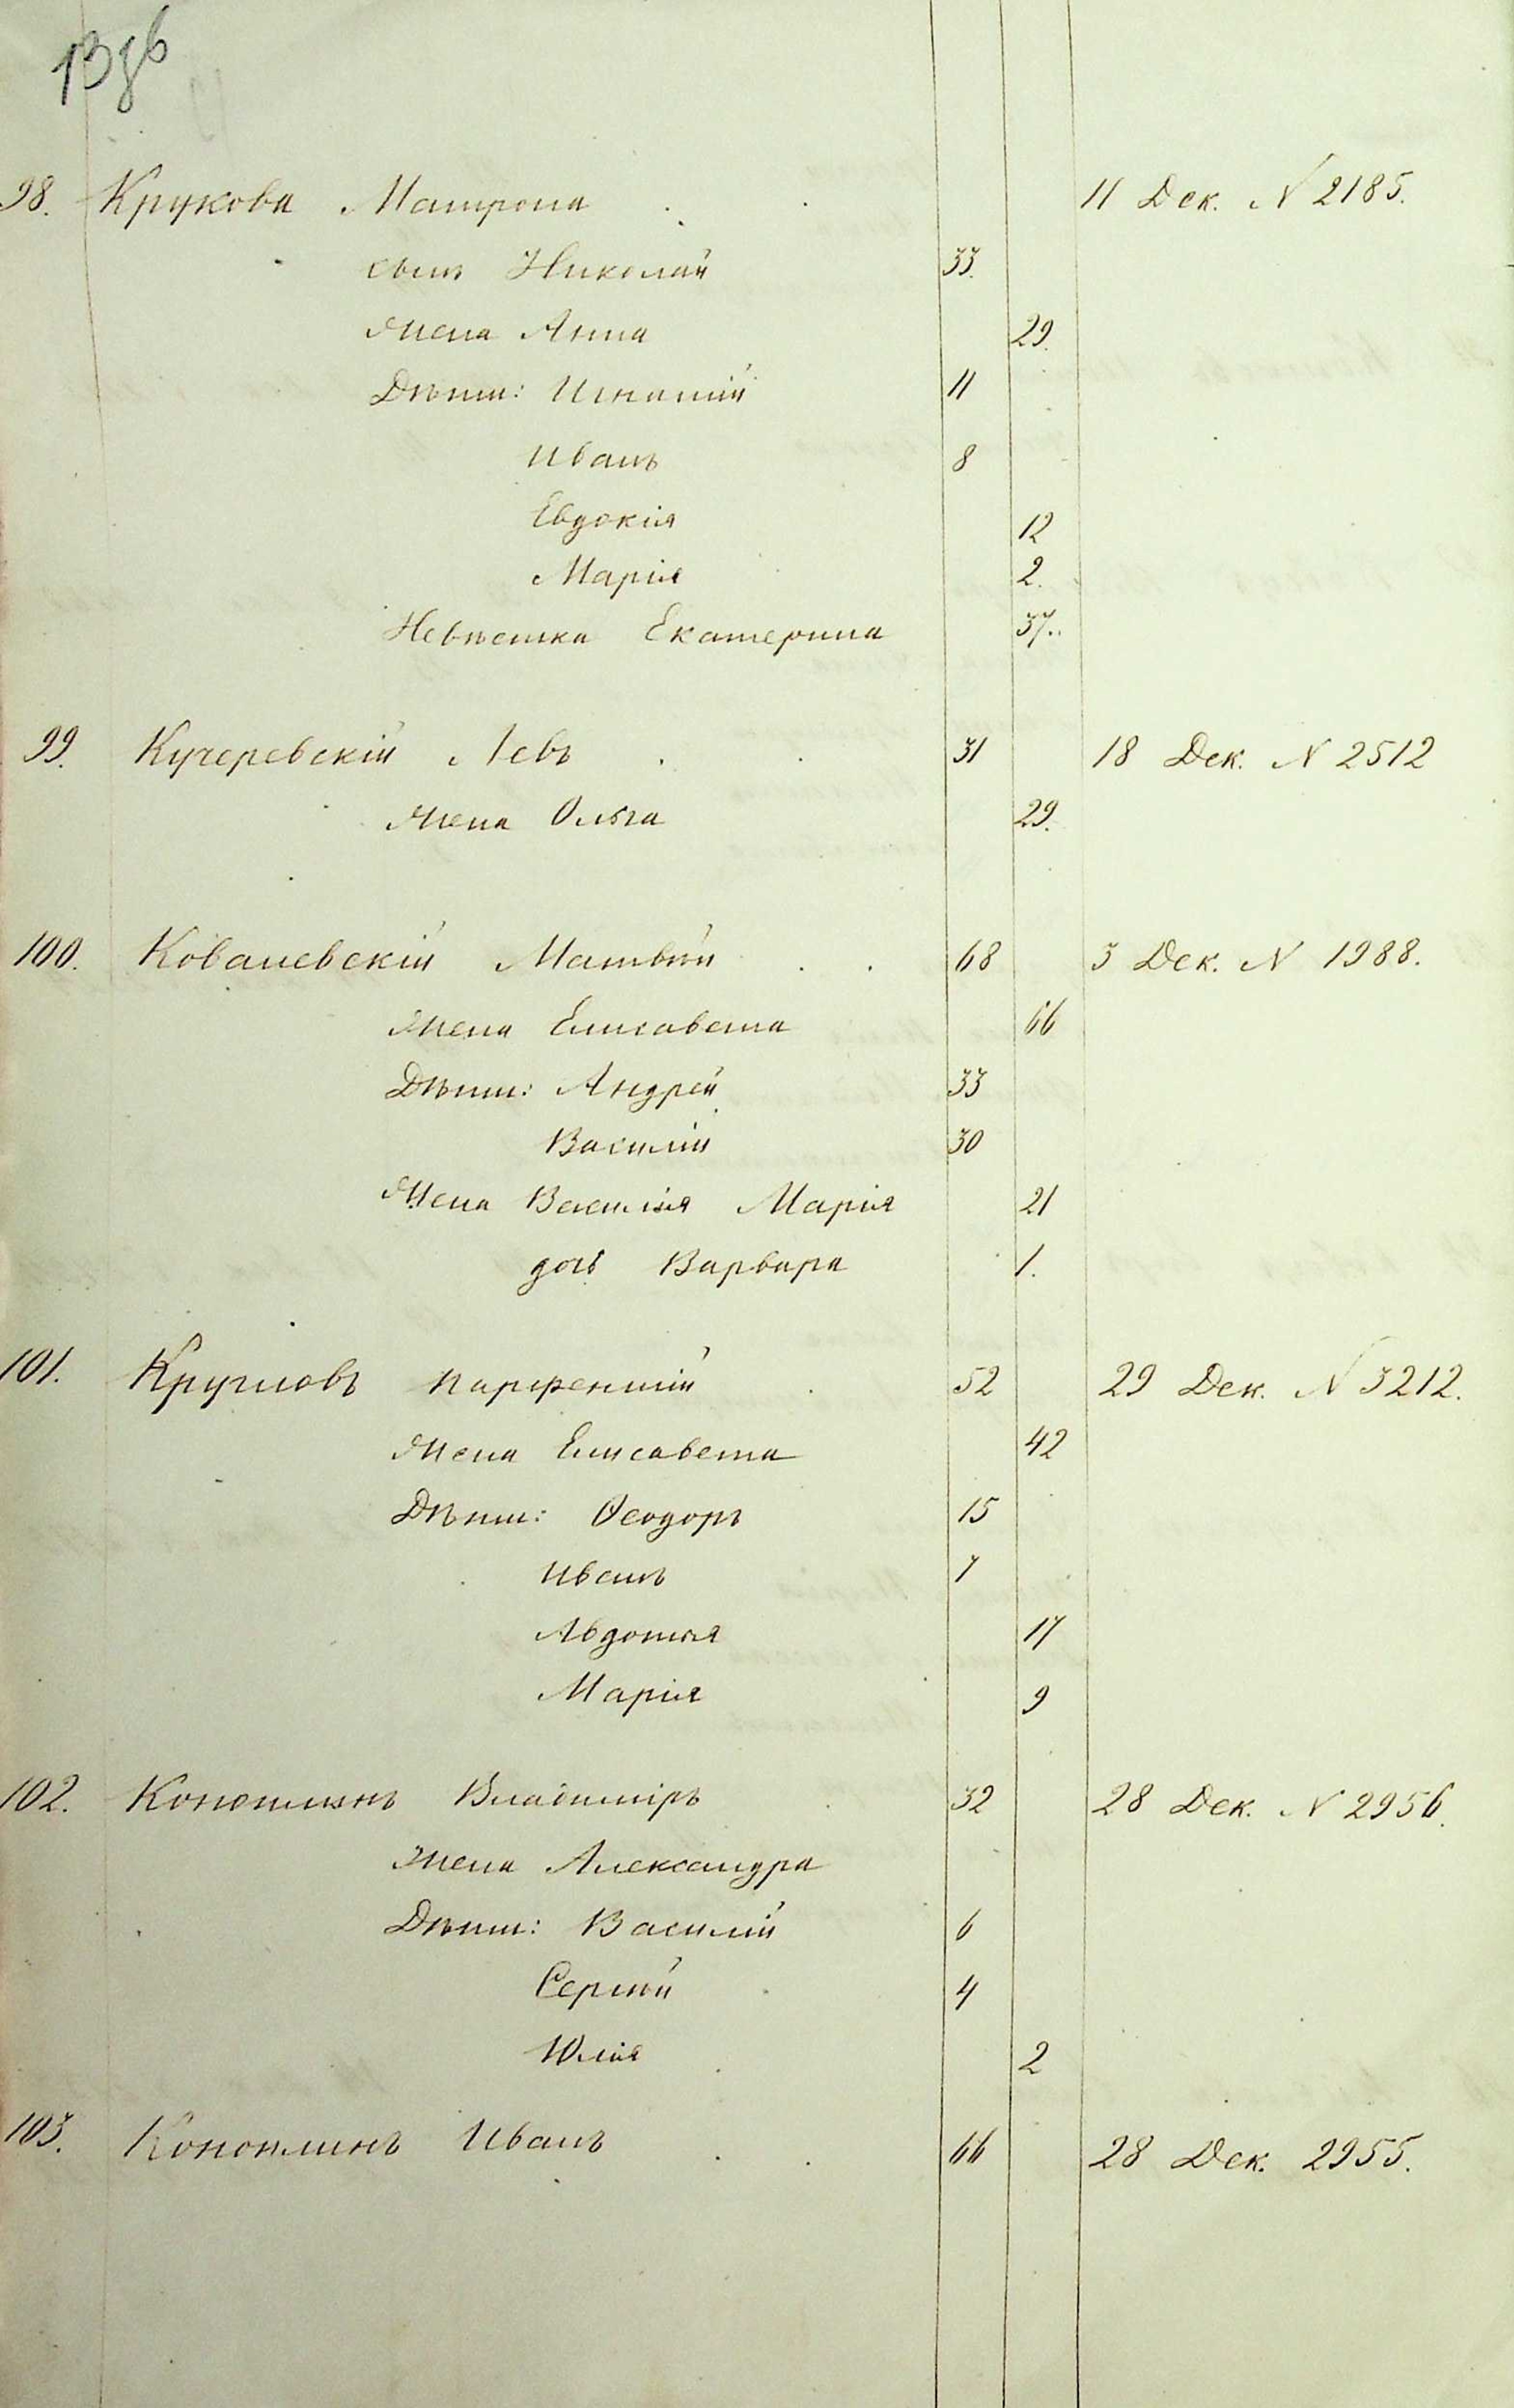 13зв
98. Крукова Матрона . . 11 Дек. N 2185.
сынъ Николай 33.
Жена Анна 29.
Дѣти: Игнатій 11
Иванъ 8
Евдокія 12
Марія 2.
Невѣстка Екатерина 37..
99. Кучеревскій Левъ . . 31 18 Дек. N 2512
Жена Ольга 29.
100. Ковалевскій Матвѣй . . 68 3 Дек. N 1988.
Жена Елисавета 66
Дѣти: Андрей 33
Василій 30
Жена Василія Марія 21
дочь Варвара 1.
101. Кругловъ Парфентій . 52 29 Дек. N 3212.
Жена Елисавета 42
Дѣти: Ѳеодоръ 15
Иванъ 7
Авдотья 17
Марія 9
102. Коноплинъ Владиміръ . 32 28 Дек. N 2956.
Жена Александра
Дѣти: Василій 6
Сергѣй 4
Юлія 2
103. Коноплинъ Иванъ . . 66 28 Дек. 2955.